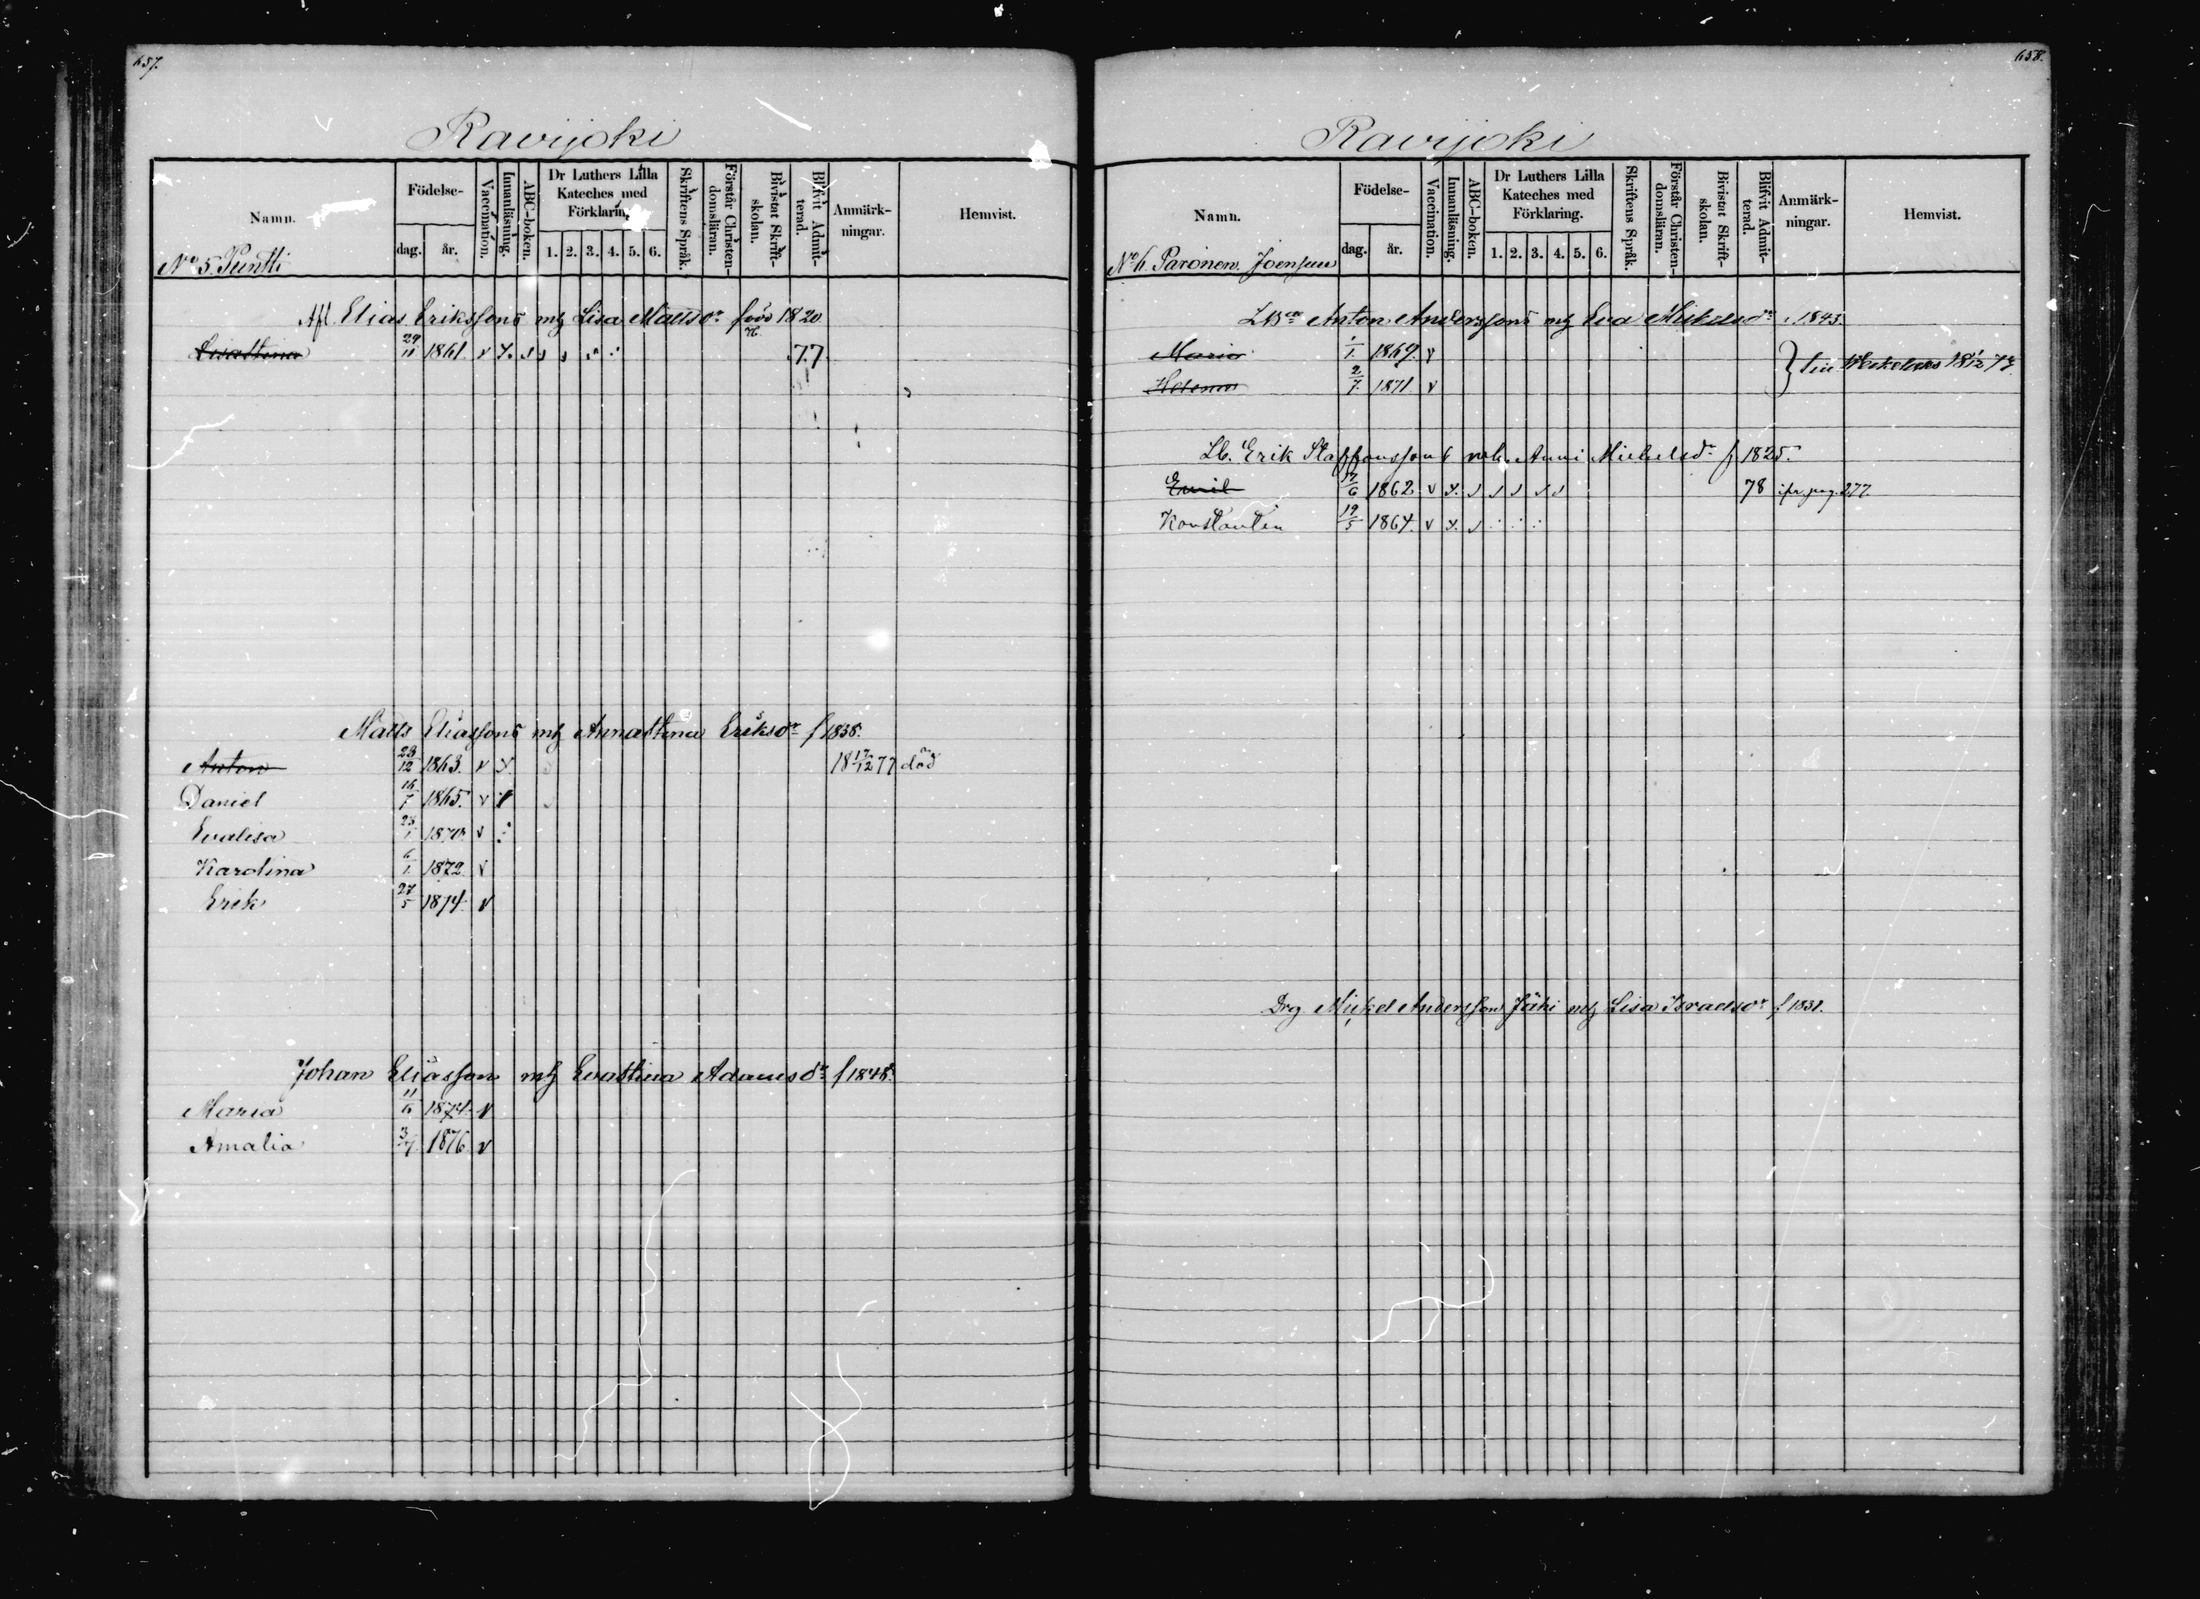 657.
Ravijoki
Namn.
Födelse-
dag. år.
Vaccination.
Innanläsning.
ABC-boken.
Dr Luthers Lilla Kateches med Förklaring.
1. 2. 3. 4. 5. 6.
Skriftens Språk.
Förstår Christen-domsläran.
Bivistat Skrift-skolan.
Blifvit Admit-terad.
Anmärk-ningar.
Hemvist.
No 5. Puntti
Afl. Elias Erikssons mh Lisa Mattsdr född 1820
Lisastina 29/11 1861. v 77
Matts Eliassons mh Annastina Eriksdr f 1838.
Anton 23/12 1863. v 18 17/12 77 död
Daniel 16/7 1865. v
Evalisa 1870. v
Karolina 6/1 1872 v
Erik 27/5 1874. v
Johan Eliasson mh Evastina Adamsdr f 1848.
Maria 11/6 1874. v
Amalia 3/7 1876 v
658.
Ravijoki
Namn.
Födelse-
dag. år.
Vaccination.
Innanläsning.
ABC-boken.
Dr Luthers Lilla Kateches med Förklaring.
1. 2. 3. 4. 5. 6.
Skriftens Språk.
Förstår Christen-domsläran.
Bivistat Skrift-skolan.
Blifvit Admit-terad.
Anmärk-ningar.
Hemvist.
No 6. Paronen Joensuu
Anton Anderssons mh Eva Mickelsdr 1843.
Maria 1869. v
2/7 1871 v
Lb. Erik Staffanssons enk. Anni Michelsdr f 1825.
Emil 17/6 1862 v 78 pag. 277.
Konstantin 19/5 1864. v
Drg Mickel Andersson Jäki mh Lisa Israelsdr f 1831.